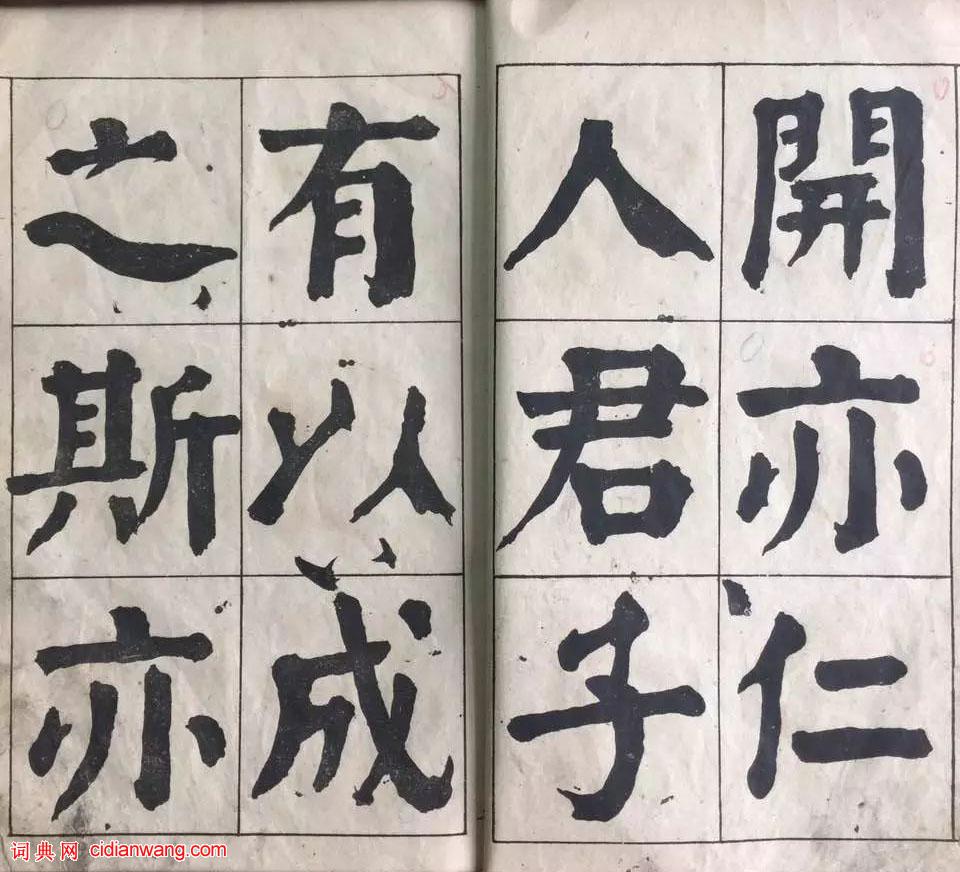 開亦仁
人君子
有以成
之斯亦
词典网 cidianwang.com